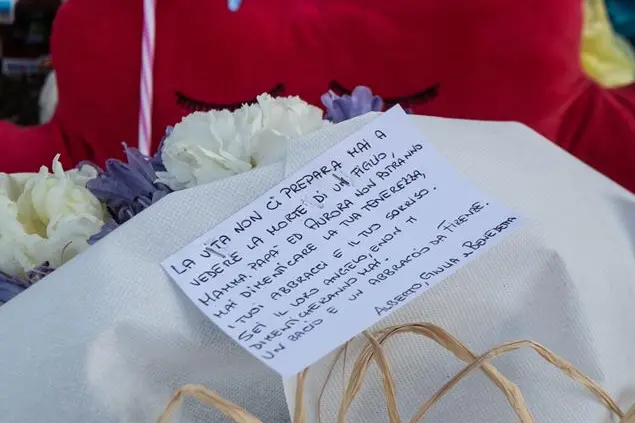 LA VITA NON CI PREPARA MAI A
VEDERE LA MORTE DI UN FIGLIO,
MAMMA, PAPA' ED AURORA NON POTRANNO
MAI DIMENTICARE LA TUA TENEREZZA,
I TUOI ABBRACCI E IL TUO SORRISO.
SEI IL LORO ANGELO, E NON TI
DIMENTICHERANNO MAI.
UN BACIO E UN ABBRACCIO DA FIRENZE.
ALBERTO, GIULIA e BENEDETTA